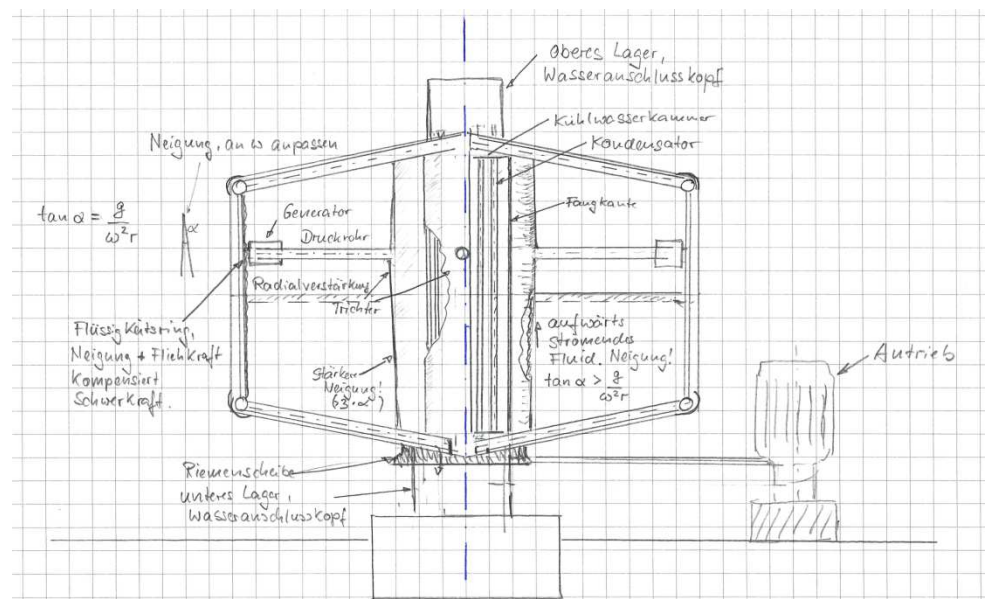 oberes Lager,
Wasseranschlusskopf
Kühlwasserkammer
Kondensator
Neigung, an ω anpassen
Fangkante
tan α = g / ω²r
α
Generator
Druckrohr
Radialverstärkung
Trichter
Flüssigkeitsring,
Neigung + Fliehkraft
kompensiert
Schwerkraft.
Stärkere
Neigung!
(≈3·α)
aufwärts
strömendes
Fluid. Neigung!
tan α > g / ω²r
Antrieb
Riemenscheibe
unteres Lager,
Wasseranschlusskopf